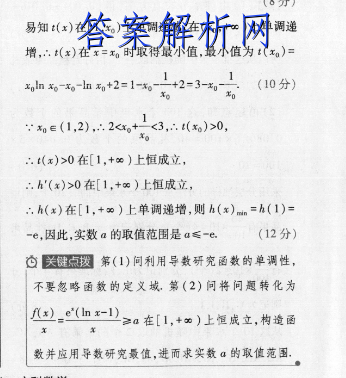 (8分)
易知t(x)在
上单调递
增,∴t(x)在x=x₀时取得最小值,最小值为t(x₀)=
答案解析网
x₀ln x₀-x₀-ln x₀+2=1-x₀-1/x₀+2=3-x₀-1/x₀. (10分)
∵x₀∈(1,2),∴2<x₀+1/x₀<3,∴t(x₀)>0,
∴t(x)>0在[1,+∞)上恒成立,
∴h′(x)>0在[1,+∞)上恒成立,
∴h(x)在[1,+∞)上单调递增,则h(x)min=h(1)=
-e,因此,实数a的取值范围是a≤-e. (12分)
关键点拨 第(1)问利用导数研究函数的单调性,
不要忽略函数的定义域.第(2)问将问题转化为
f(x)/x=eˣ(ln x-1)/x≥a在[1,+∞)上恒成立,构造函
数并应用导数研究最值,进而求实数a的取值范围.